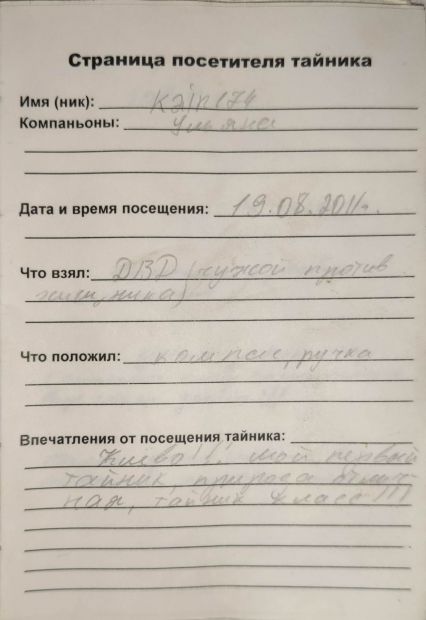 Страница посетителя тайника
Имя (ник): Kain174
Компаньоны: Ульяна
Дата и время посещения: 19.08.2011г.
Что взял: ДВД (чужой против
хищника)
Что положил: компас, ручка
Впечатления от посещения тайника:
Клёво!!! мой первый
тайник, природа отлич
ная, тайник класс!!!